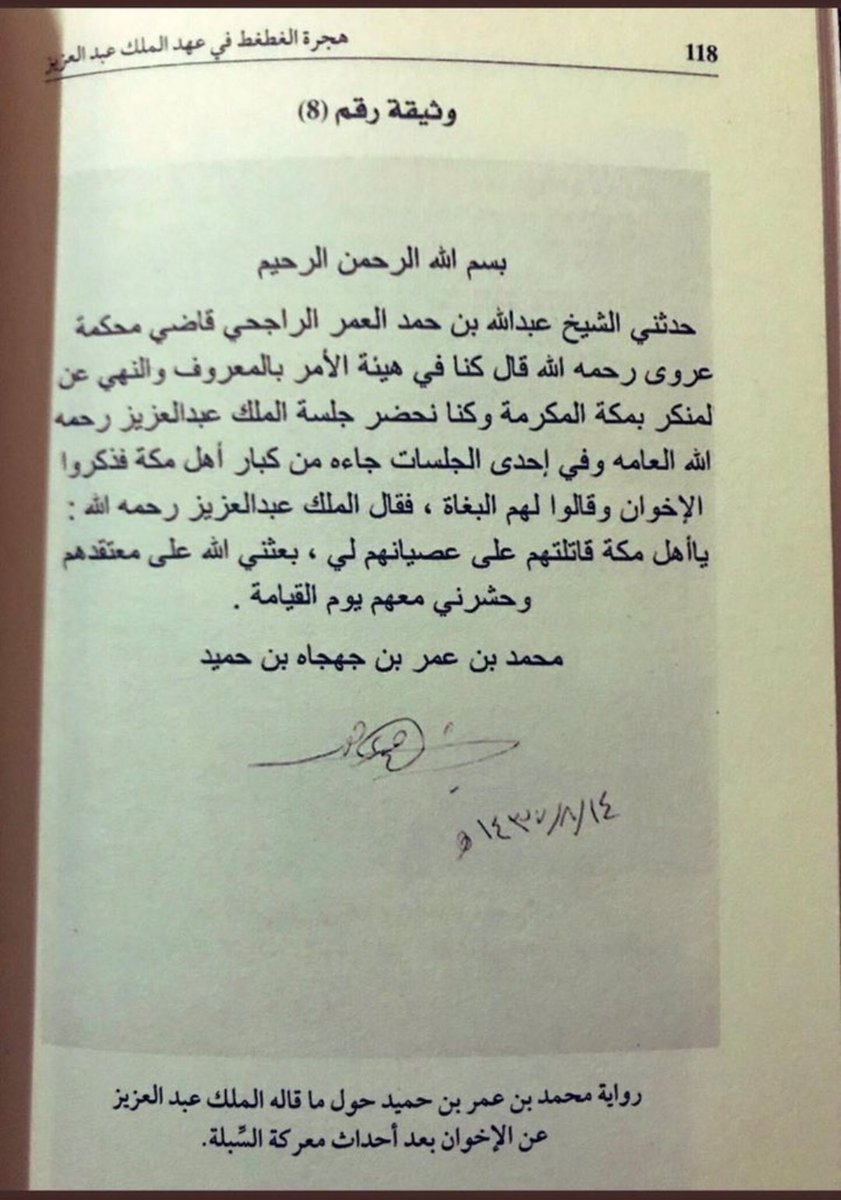 118
هجرة الغطغط في عهد الملك عبد العزيز
وثيقة رقم (8)
بسم الله الرحمن الرحيم
حدثني الشيخ عبدالله بن حمد العمر الراجحي قاضي محكمة
عروى رحمه الله قال كنا في هيئة الأمر بالمعروف والنهي عن
لمنكر بمكة المكرمة وكنا نحضر جلسة الملك عبدالعزيز رحمه
الله العامه وفي إحدى الجلسات جاءه من كبار أهل مكة فذكروا
الإخوان وقالوا لهم البغاة ، فقال الملك عبدالعزيز رحمه الله :
ياأهل مكة قاتلتهم على عصيانهم لي ، بعثني الله على معتقدهم
وحشرني معهم يوم القيامة .
محمد بن عمر بن جهجاه بن حميد
١٤٣٧/٨/١٤هـ
رواية محمد بن عمر بن حميد حول ما قاله الملك عبد العزيز
عن الإخوان بعد أحداث معركة السِّبلة.